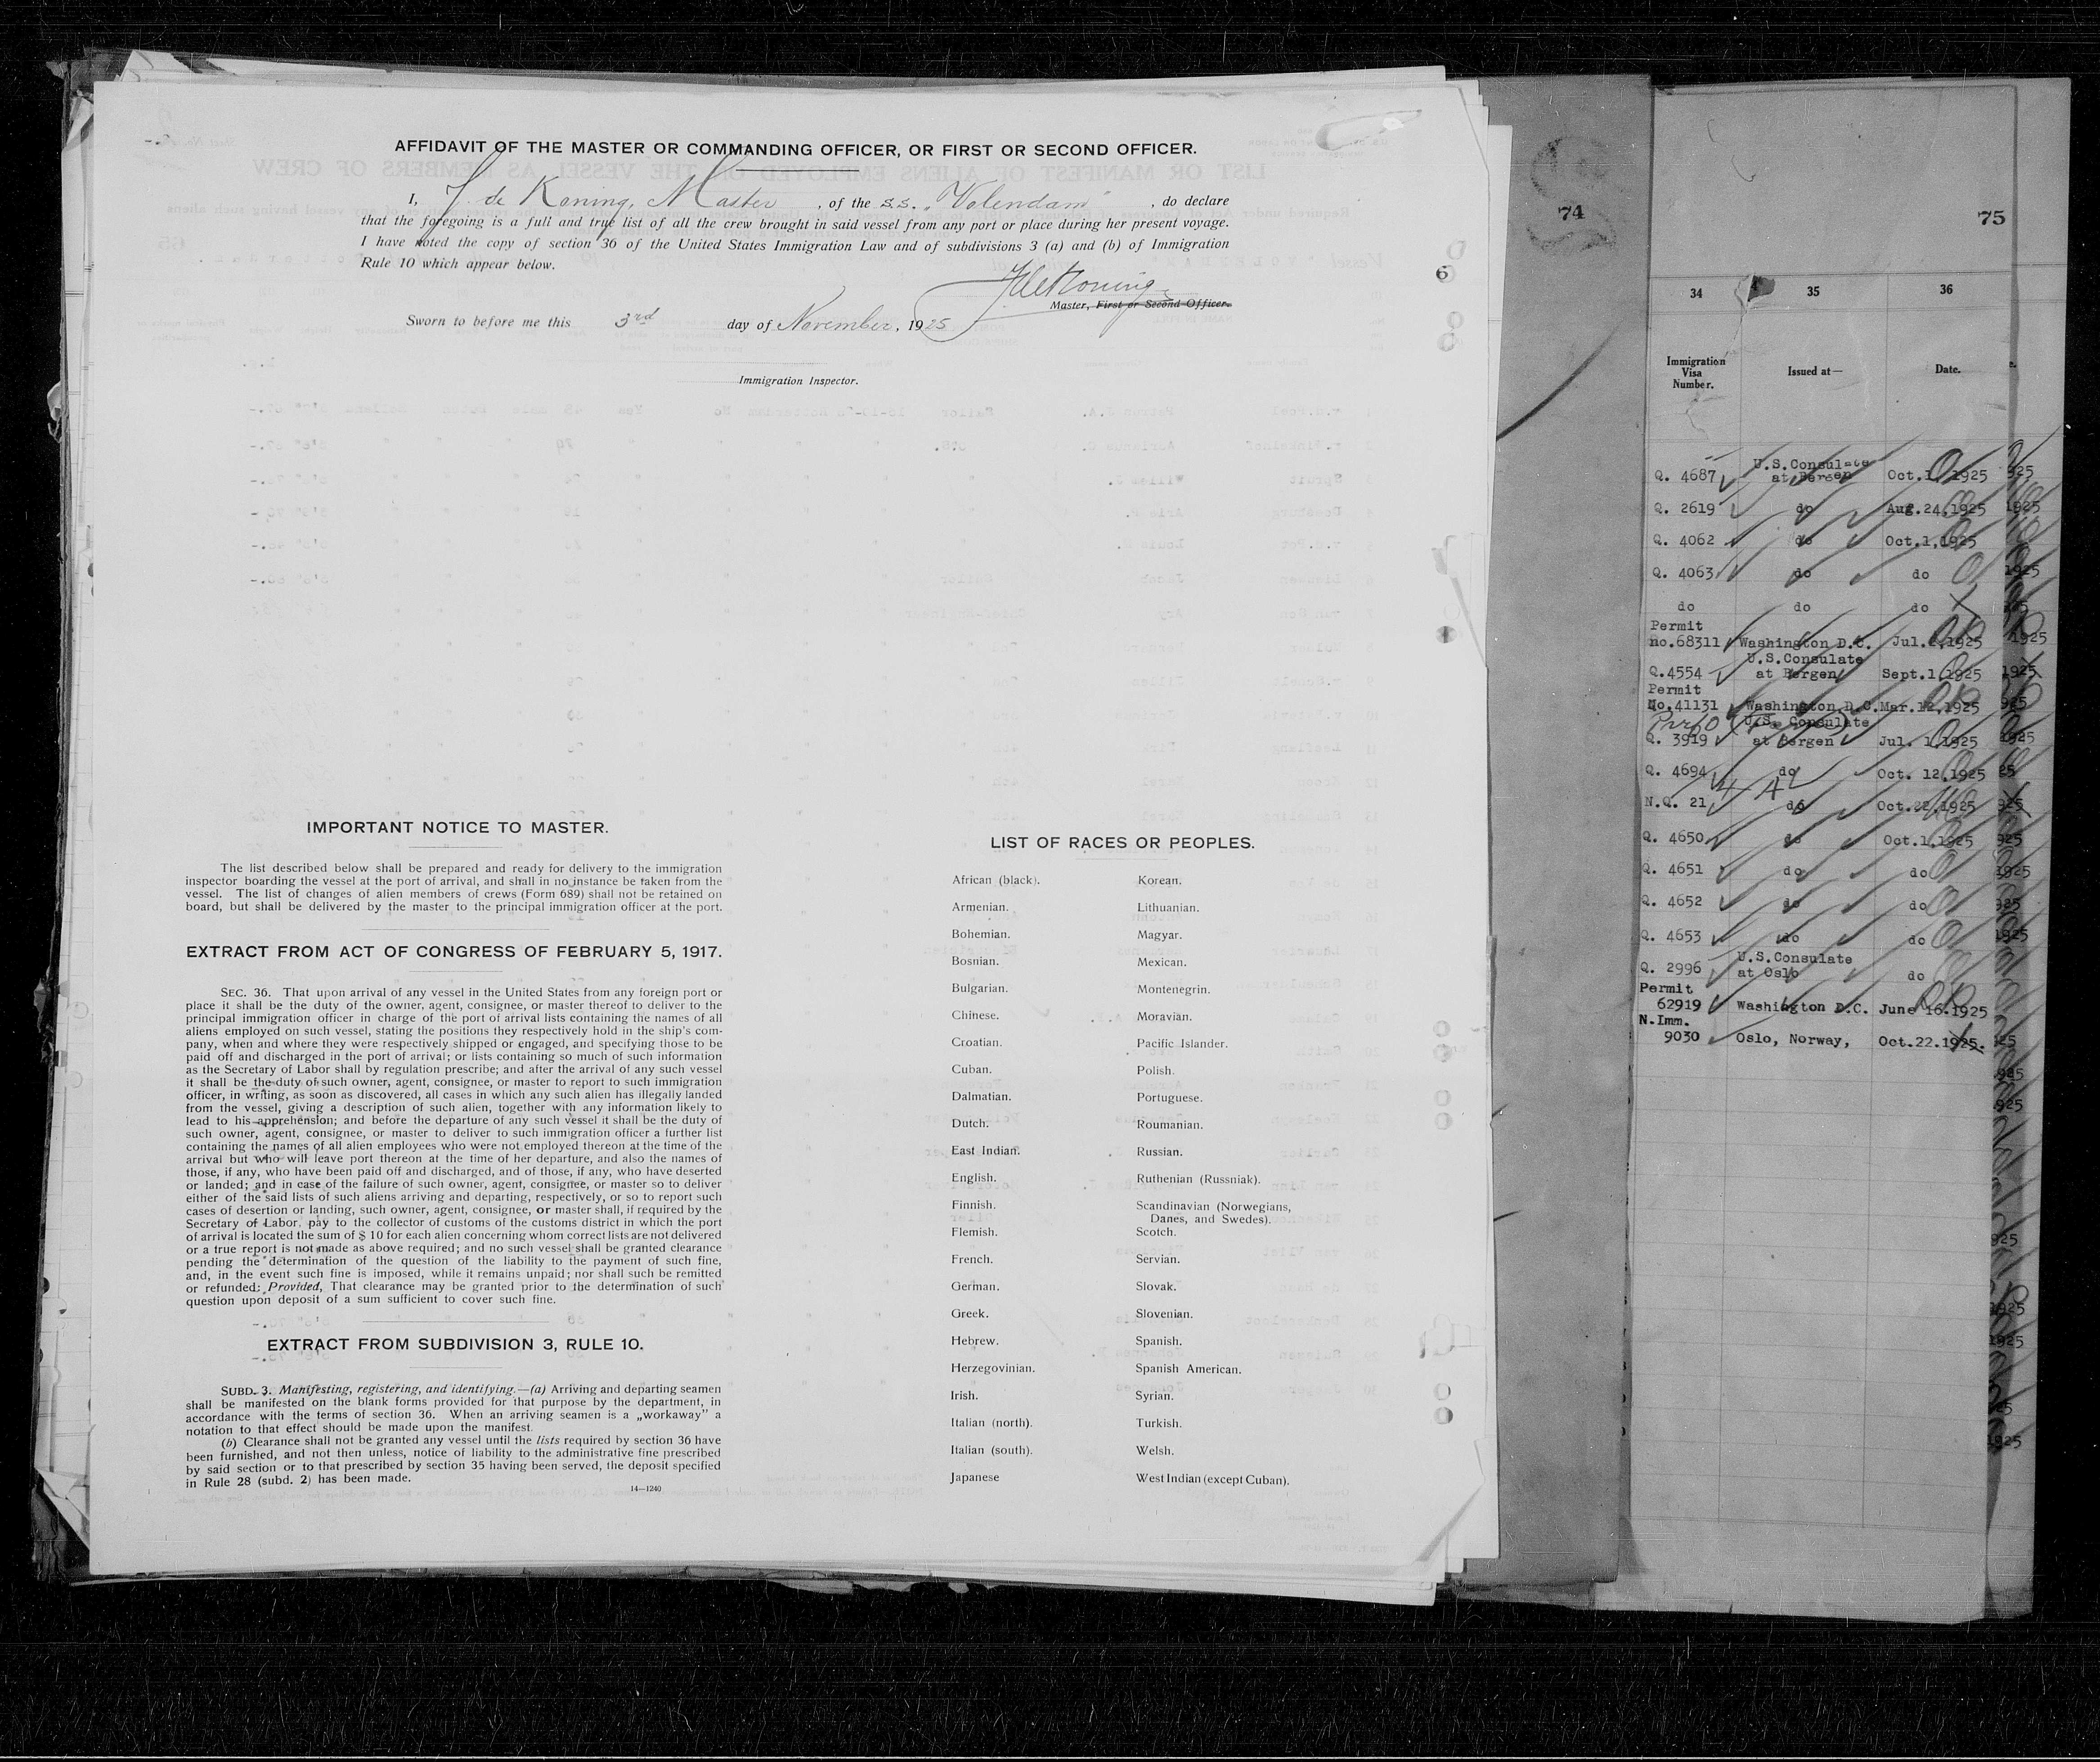 AFFIDAVIT OF THE MASTER OR COMMANDING OFFICER, OR FIRST OR SECOND OFFICER.
I, J. de Koning, Master , of the s.s. „Volendam" , do declare
that the foregoing is a full and true list of all the crew brought in said vessel from any port or place during her present voyage.
I have noted the copy of section 36 of the United States Immigration Law and of subdivisions 3 (a) and (b) of Immigration
Rule 10 which appear below.
JdeKoning
Master, First or Second Officer.
Sworn to before me this 3rd day of November, 1925
Immigration Inspector.
IMPORTANT NOTICE TO MASTER.
The list described below shall be prepared and ready for delivery to the immigration
inspector boarding the vessel at the port of arrival, and shall in no instance be taken from the
vessel. The list of changes of alien members of crews (Form 689) shall not be retained on
board, but shall be delivered by the master to the principal immigration officer at the port.
EXTRACT FROM ACT OF CONGRESS OF FEBRUARY 5, 1917.
SEC. 36. That upon arrival of any vessel in the United States from any foreign port or
place it shall be the duty of the owner, agent, consignee, or master thereof to deliver to the
principal immigration officer in charge of the port of arrival lists containing the names of all
aliens employed on such vessel, stating the positions they respectively hold in the ship's com-
pany, when and where they were respectively shipped or engaged, and specifying those to be
paid off and discharged in the port of arrival; or lists containing so much of such information
as the Secretary of Labor shall by regulation prescribe; and after the arrival of any such vessel
it shall be the duty of such owner, agent, consignee, or master to report to such immigration
officer, in writing, as soon as discovered, all cases in which any such alien has illegally landed
from the vessel, giving a description of such alien, together with any information likely to
lead to his apprehension; and before the departure of any such vessel it shall be the duty of
such owner, agent, consignee, or master to deliver to such immigration officer a further list
containing the names of all alien employees who were not employed thereon at the time of the
arrival but who will leave port thereon at the time of her departure, and also the names of
those, if any, who have been paid off and discharged, and of those, if any, who have deserted
or landed; and in case of the failure of such owner, agent, consignee, or master so to deliver
either of the said lists of such aliens arriving and departing, respectively, or so to report such
cases of desertion or landing, such owner, agent, consignee, or master shall, if required by the
Secretary of Labor, pay to the collector of customs of the customs district in which the port
of arrival is located the sum of $ 10 for each alien concerning whom correct lists are not delivered
or a true report is not made as above required; and no such vessel shall be granted clearance
pending the determination of the question of the liability to the payment of such fine,
and, in the event such fine is imposed, while it remains unpaid; nor shall such be remitted
or refunded: Provided, That clearance may be granted prior to the determination of such
question upon deposit of a sum sufficient to cover such fine.
EXTRACT FROM SUBDIVISION 3, RULE 10.
SUBD. 3. Manifesting, registering, and identifying.—(a) Arriving and departing seamen
shall be manifested on the blank forms provided for that purpose by the department, in
accordance with the terms of section 36. When an arriving seamen is a „workaway" a
notation to that effect should be made upon the manifest.
(b) Clearance shall not be granted any vessel until the lists required by section 36 have
been furnished, and not then unless, notice of liability to the administrative fine prescribed
by said section or to that prescribed by section 35 having been served, the deposit specified
in Rule 28 (subd. 2) has been made.
14—1240
LIST OF RACES OR PEOPLES.
African (black).
Armenian.
Bohemian.
Bosnian.
Bulgarian.
Chinese.
Croatian.
Cuban.
Dalmatian.
Dutch.
East Indian.
English.
Finnish.
Flemish.
French.
German.
Greek.
Hebrew.
Herzegovinian.
Irish.
Italian (north).
Italian (south).
Japanese
Korean.
Lithuanian.
Magyar.
Mexican.
Montenegrin.
Moravian.
Pacific Islander.
Polish.
Portuguese.
Roumanian.
Russian.
Ruthenian (Russniak).
Scandinavian (Norwegians,
Danes, and Swedes).
Scotch.
Servian.
Slovak.
Slovenian.
Spanish.
Spanish American.
Syrian.
Turkish.
Welsh.
West Indian (except Cuban).
6
74
75
34 35 36
Immigration
Visa
Number.
Issued at—
Date.
Q. 4687 U.S.Consulate at Bergen Oct.1,1925
Q. 2619 do Aug.24,1925
Q. 4062 do Oct.1,1925
Q. 4063 do do
do do do
Permit
no.68311 Washington D.C. Jul. 1925
Q.4554 U.S.Consulate at Bergen Sept.1,1925
Permit
No.41131 Washington D.C. Mar.12,1925
Q. 3919 U.S. Consulate at Bergen Jul. 1,1925
Q. 4694 do Oct. 12,1925
N.Q. 21 do Oct.22,1925
Q. 4650 do Oct.1,1925
Q. 4651 do do
Q. 4652 do do
Q. 4653 do do
Q. 2996 U.S.Consulate at Oslo do
Permit
62919 Washington D.C. June 16.1925
N.Imm.
9030 Oslo, Norway, Oct.22.1925.